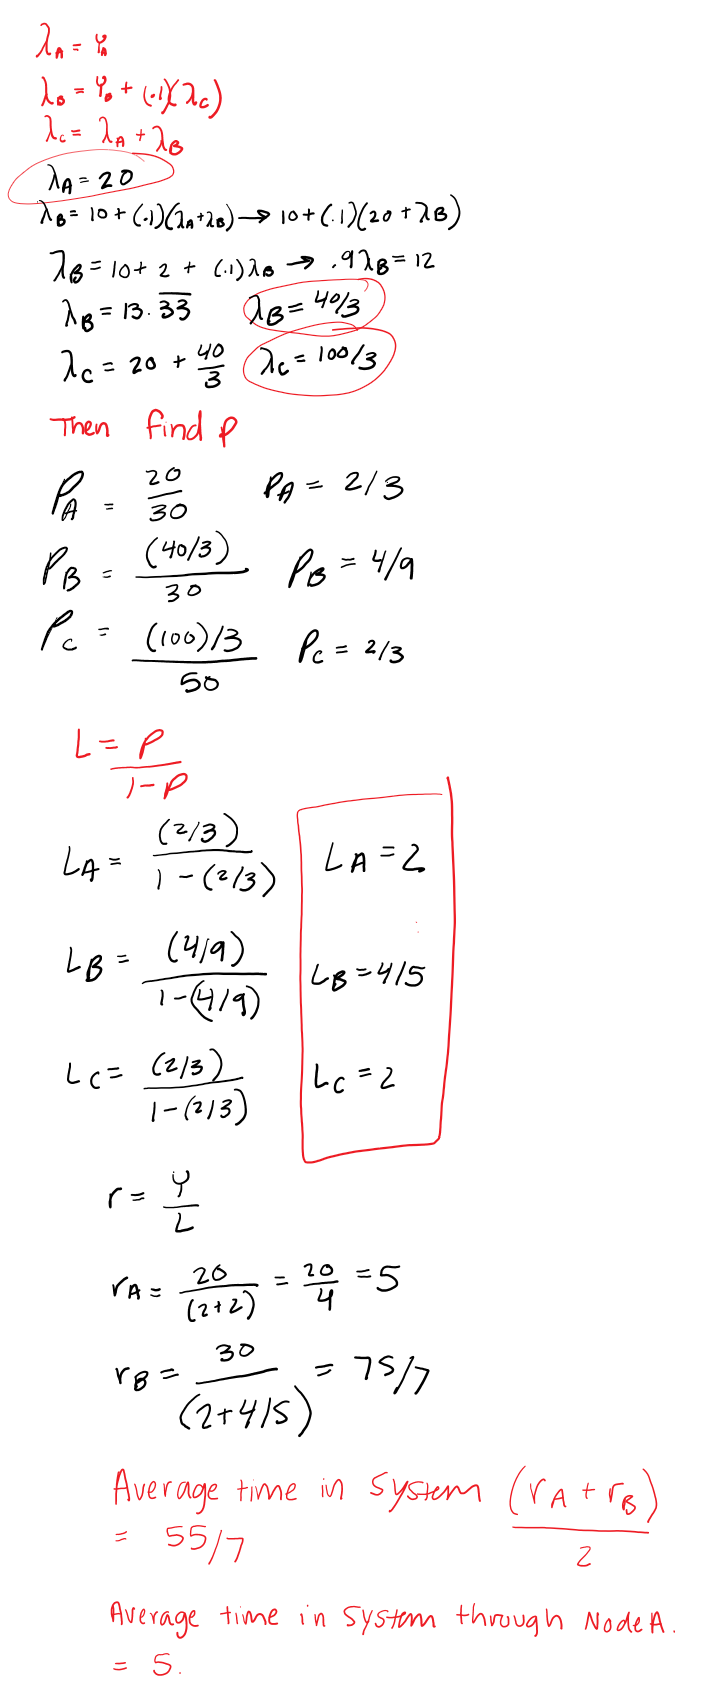 λA = γA
λB = γB + (.1)(λC)
λC = λA + λB
λA = 20
λB = 10 + (.1)(λA+λB) → 10 + (.1)(20 + λB)
λB = 10 + 2 + (.1)λB → .9λB = 12
λB = 13.3̅3̅ λB = 40/3
λC = 20 + 40/3 λC = 100/3
Then find ρ
ρA = 20/30 ρA = 2/3
ρB = (40/3)/30 ρB = 4/9
ρC = (100)/3/50 ρC = 2/3
L = ρ/1-ρ
LA = (2/3)/1-(2/3) LA = 2
LB = (4/9)/1-(4/9) LB = 4/5
LC = (2/3)/1-(2/3) LC = 2
r = γ/L
rA = 20/(2+2) = 20/4 = 5
rB = 30/(2+4/5) = 75/7
Average time in system (rA + rB)/2
= 55/7
Average time in system through Node A.
= 5.